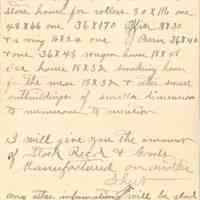 Store house for rollers 30 X 110 one
48 X 66 one 36 X 170 Office 18 X 30
& a wing 16 X 24 one Barn 36 X 40
& one 36 X 45 wagon house 18 X 45
ice house 18 X 32 smoking house
for the men 18 X 32 & other small
outbuildings of smaller dimension
to numerous to mention
I will give you the amount
of Stock Recd & Goods
Manufactured on another
any other information will be glad